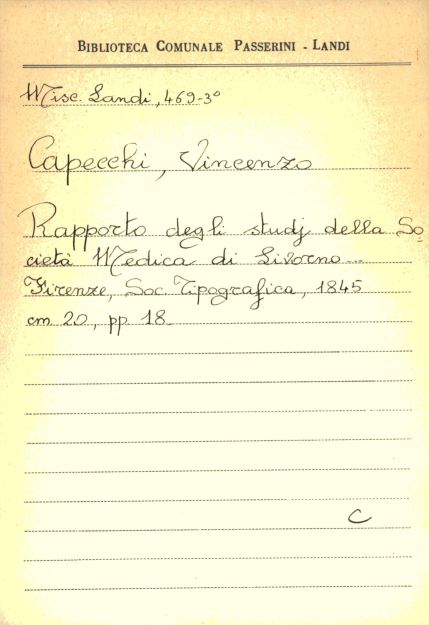 BIBLIOTECA COMUNALE PASSERINI - LANDI
Misc. Landi, 469-3°
Capecchi, Vincenzo
Rapporto degli studj della So-
cietà Medica di Livorno...
Firenze, Soc. Tipografica, 1845
cm 20, pp 18.
C